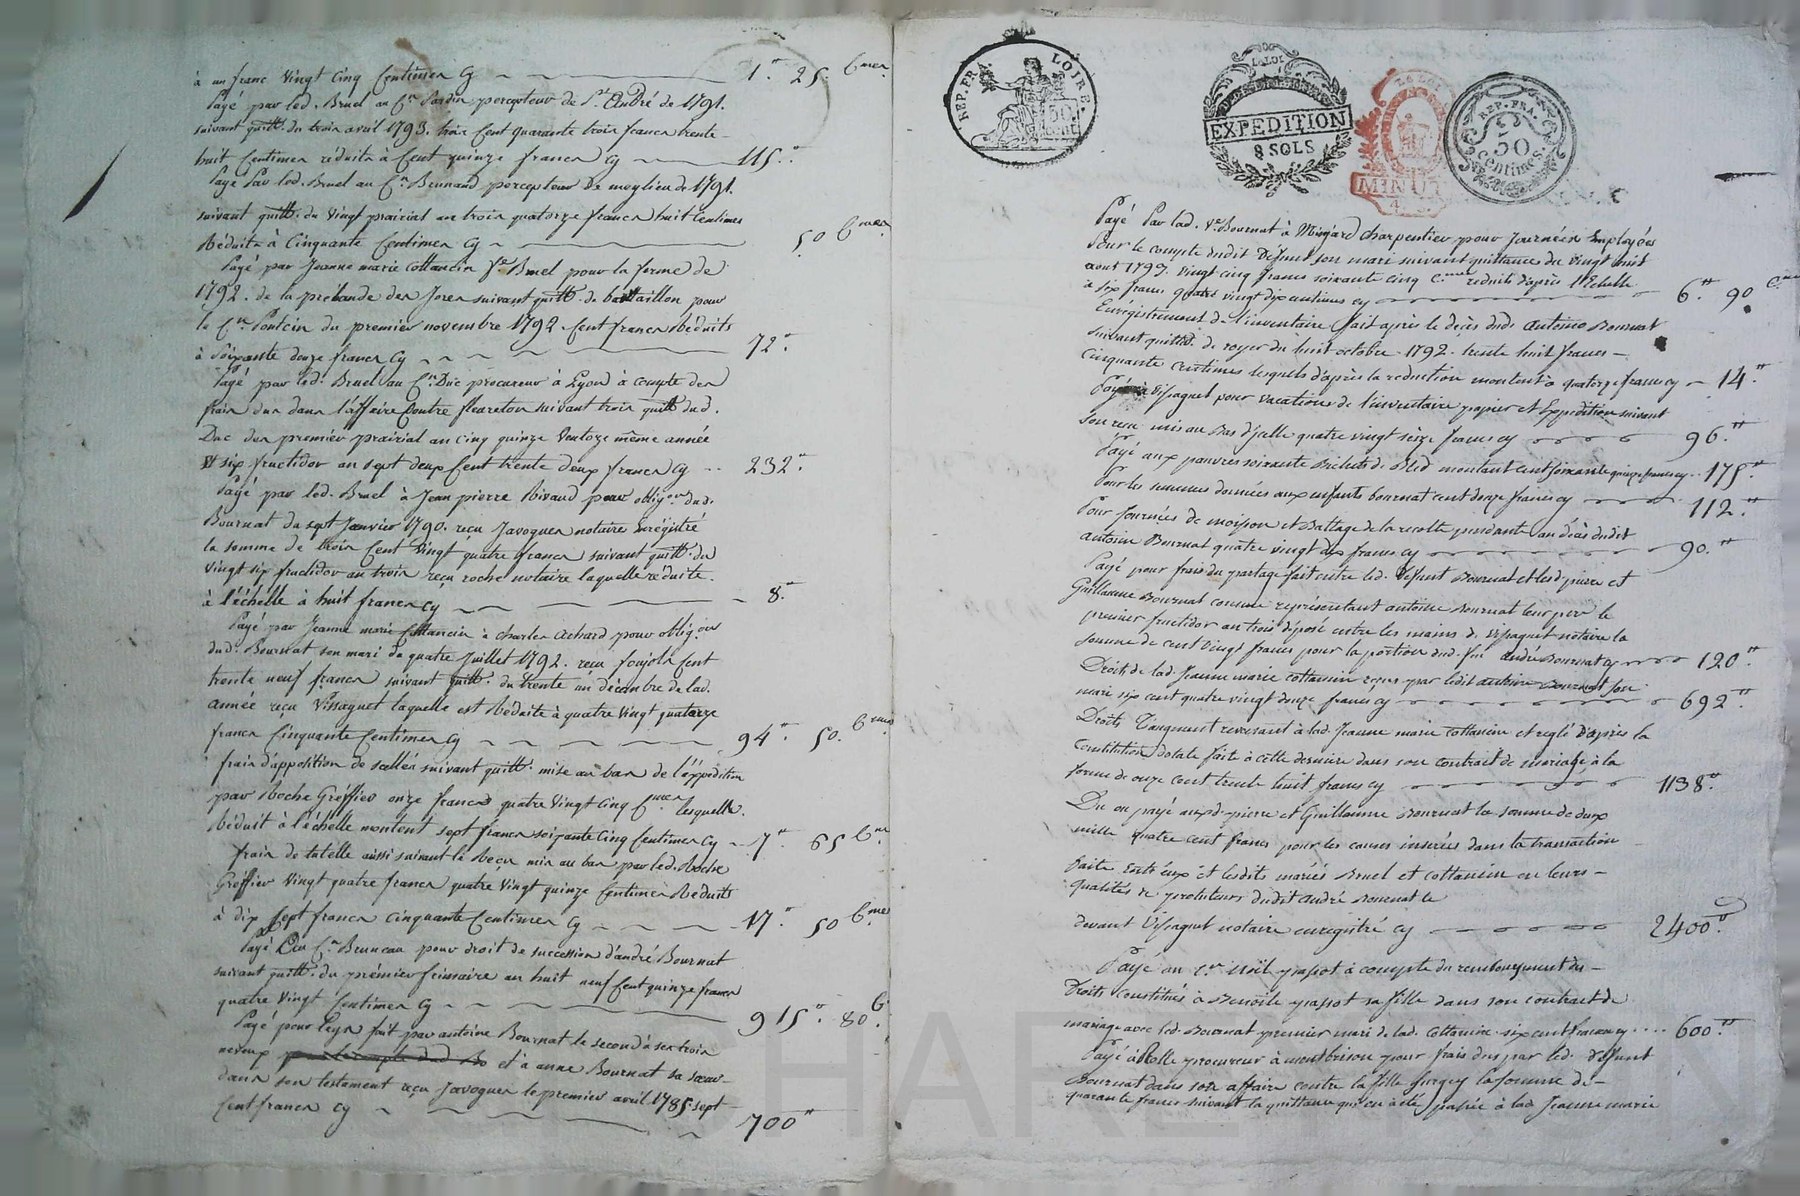 à un franc vingt cinq Centimes Cy 1.# 25. Cmes
Payé par led. Bruel au Cn Jardin percepteur de St. André de 1791.
suivant quitt. du trois avril 1793. trois Cent quarante trois francs trente
huit Centimes réduits à Cent quinze francs Cy 115.#
Payé Par led. Bruel au Cn. Bernand percepteur de moylieu de 1791.
suivant quitt. du vingt prairial an trois quatorze francs huit Centimes
Réduits à Cinquante Centimes Cy 50 Cmes
Payé par Jeanne marie Cottancin fe. Bruel pour la ferme de
1792. de la prébande des Jores suivant quitt. de bataillon pour
le Cn. Pontcin du premier novembre 1792. Cent francs Réduits
à Soixante douze francs Cy 72.#
Payé par led. Bruel au Cn. Duc procureur à Lyon à compte des
frais dus dans l'affaire Contre fleureton suivant trois quitt. dud.
Duc des premier prairial an cinq quinze Ventoze même année
Et six fructidor an sept deux Cent trente deux francs Cy 232.#
Payé par led. Bruel à Jean pierre Rivaud pour oblig.on dud.
Bournat du sept Janvier 1790. reçu Javogues notaire Enrégistré
la somme de trois Cent Vingt quatre francs suivant quitt. du
vingt six fructidor an trois reçu roche notaire laquelle réduite.
à l'échelle à huit francs Cy 8.#
Payé par Jeanne marie Cottancin à Charles Achard pour oblig.on
dud. Bournat son mari du quatre Juillet 1792. reçu foujols Cent
trente neuf francs suivant quitt. du trente un décembre de lad.
année reçu Vissaguet laquelle est Réduite à quatre vingt quatorze
francs Cinquante Centimes Cy 94.# 50. Cmes
frais d'apposition de scellés suivant quitt. mise au bas de l'éxpédition
par Roche Gréffier onze francs quatre Vingt Cinq Cmes lesquelle.
Réduit à l'échelle montent sept francs soixante Cinq Centimes Cy 7.# 65 Cmes
frais de tutelle aussi suivant le Reçu mis au bas par led. Roche
Gréffier Vingt quatre francs quatre Vingt quinze Centimes Réduits
à dix Sept francs cinquante Centimes Cy 17.# 50 Cmes
Payé au Cn. Bruneau pour droit de succession d'andré Bournat
suivant quitt. du prémier frimaire an huit neuf Cent quinze francs
quatre Vingt Centimes Cy 915.# 80 C.
Payé pour Legs fait par antoine Bournat le second à ses trois
neveux et à anne Bournat sa sœur
dans son testament reçu Javogues le premier avril 1785. sept
Cent francs Cy 700#
REP. FRA. LOIRE.
50 Cent
LA LOI
EXPEDITION
8 SOLS
LA LOI
MINUT
4 S.
REP. FRA.
50
Centimes.
Payé Par lad. Ve. Bournat à Migard charpentier pour Journées Employées
Pour le compte dudit Défunt son mari suivant quittance du vingt huit
aout 1793. vingt cinq francs soixante cinq Cmes réduits d'après l'Echelle
à six francs quatre vingt dix centimes cy 6.# 90 Cmes
Enrégistrement de l'inventaire fait après le décès dud. Antoine Bournat
suivant quitte. de royer du huit octobre 1792. trente huit francs
Cinquante Centimes lesquels d'après la reduction montent à quatorze francs cy 14.#
Payé à Vissaguet pour vacations de l'inventaire papier et Expedition suivant
son reçu mis au Bas d'jcelle quatre vingt seize francs cy 96.#
Payé aux pauvres soixante Bichets de Bled montant cent soixante quinze francs cy 175.#
Pour les sommes données aux enfants bournat cent douze francs cy 112.#
Pour Journées de moisson et Battage de la recolte pendante au décès dudit
Antoine Bournat quatre vingt dix francs cy 90.#
Payé pour frais du partage fait entre led. Defunt Bournat et lesd. pierre et
Guillaume Bournat comme représentant antoine Bournat leur père le
premier fructidor an trois déposé entre les mains de Vissaguet notaire la
somme de cent vingt francs pour la portion dud. feu andré Bournat cy 120.#
Droits de lad. Jeanne marie cottancin reçus par ledit antoine Bournat son
mari six cent quatre vingt douze francs cy 692.#
Droits D'augment revenant à lad. Jeanne marie cottancin et reglé D'après la
Constitution dotale faite à cette derniere dans son contrat de mariage à la
somme de onze cent trente huit francs cy 1138.#
Du ou payé auxd. pierre et Guillaume Bournat la somme de deux
mille quatre cent francs pour les causes inserées dans la transaction
faite entre eux et lesdits mariés Bruel et cottancin en leurs
qualités de protuteurs dudit andré Bournat le
devant Vissaguet notaire enregistré cy 2400.#
Payé au Cn. Noël passot à compte du remboursement des
Droits constitués à Benoite passot sa fille dans son contrat de
mariage avec led. Bournat premier mari de lad. cottancin. six cent francs cy 600.#
Payé à Rolle procureur à montbrison pour frais dus par led. Defunt
Bournat dans son affaire contre la fille la somme de
quarante francs suivant la quittance qui en a été passée à lad. Jeanne marie